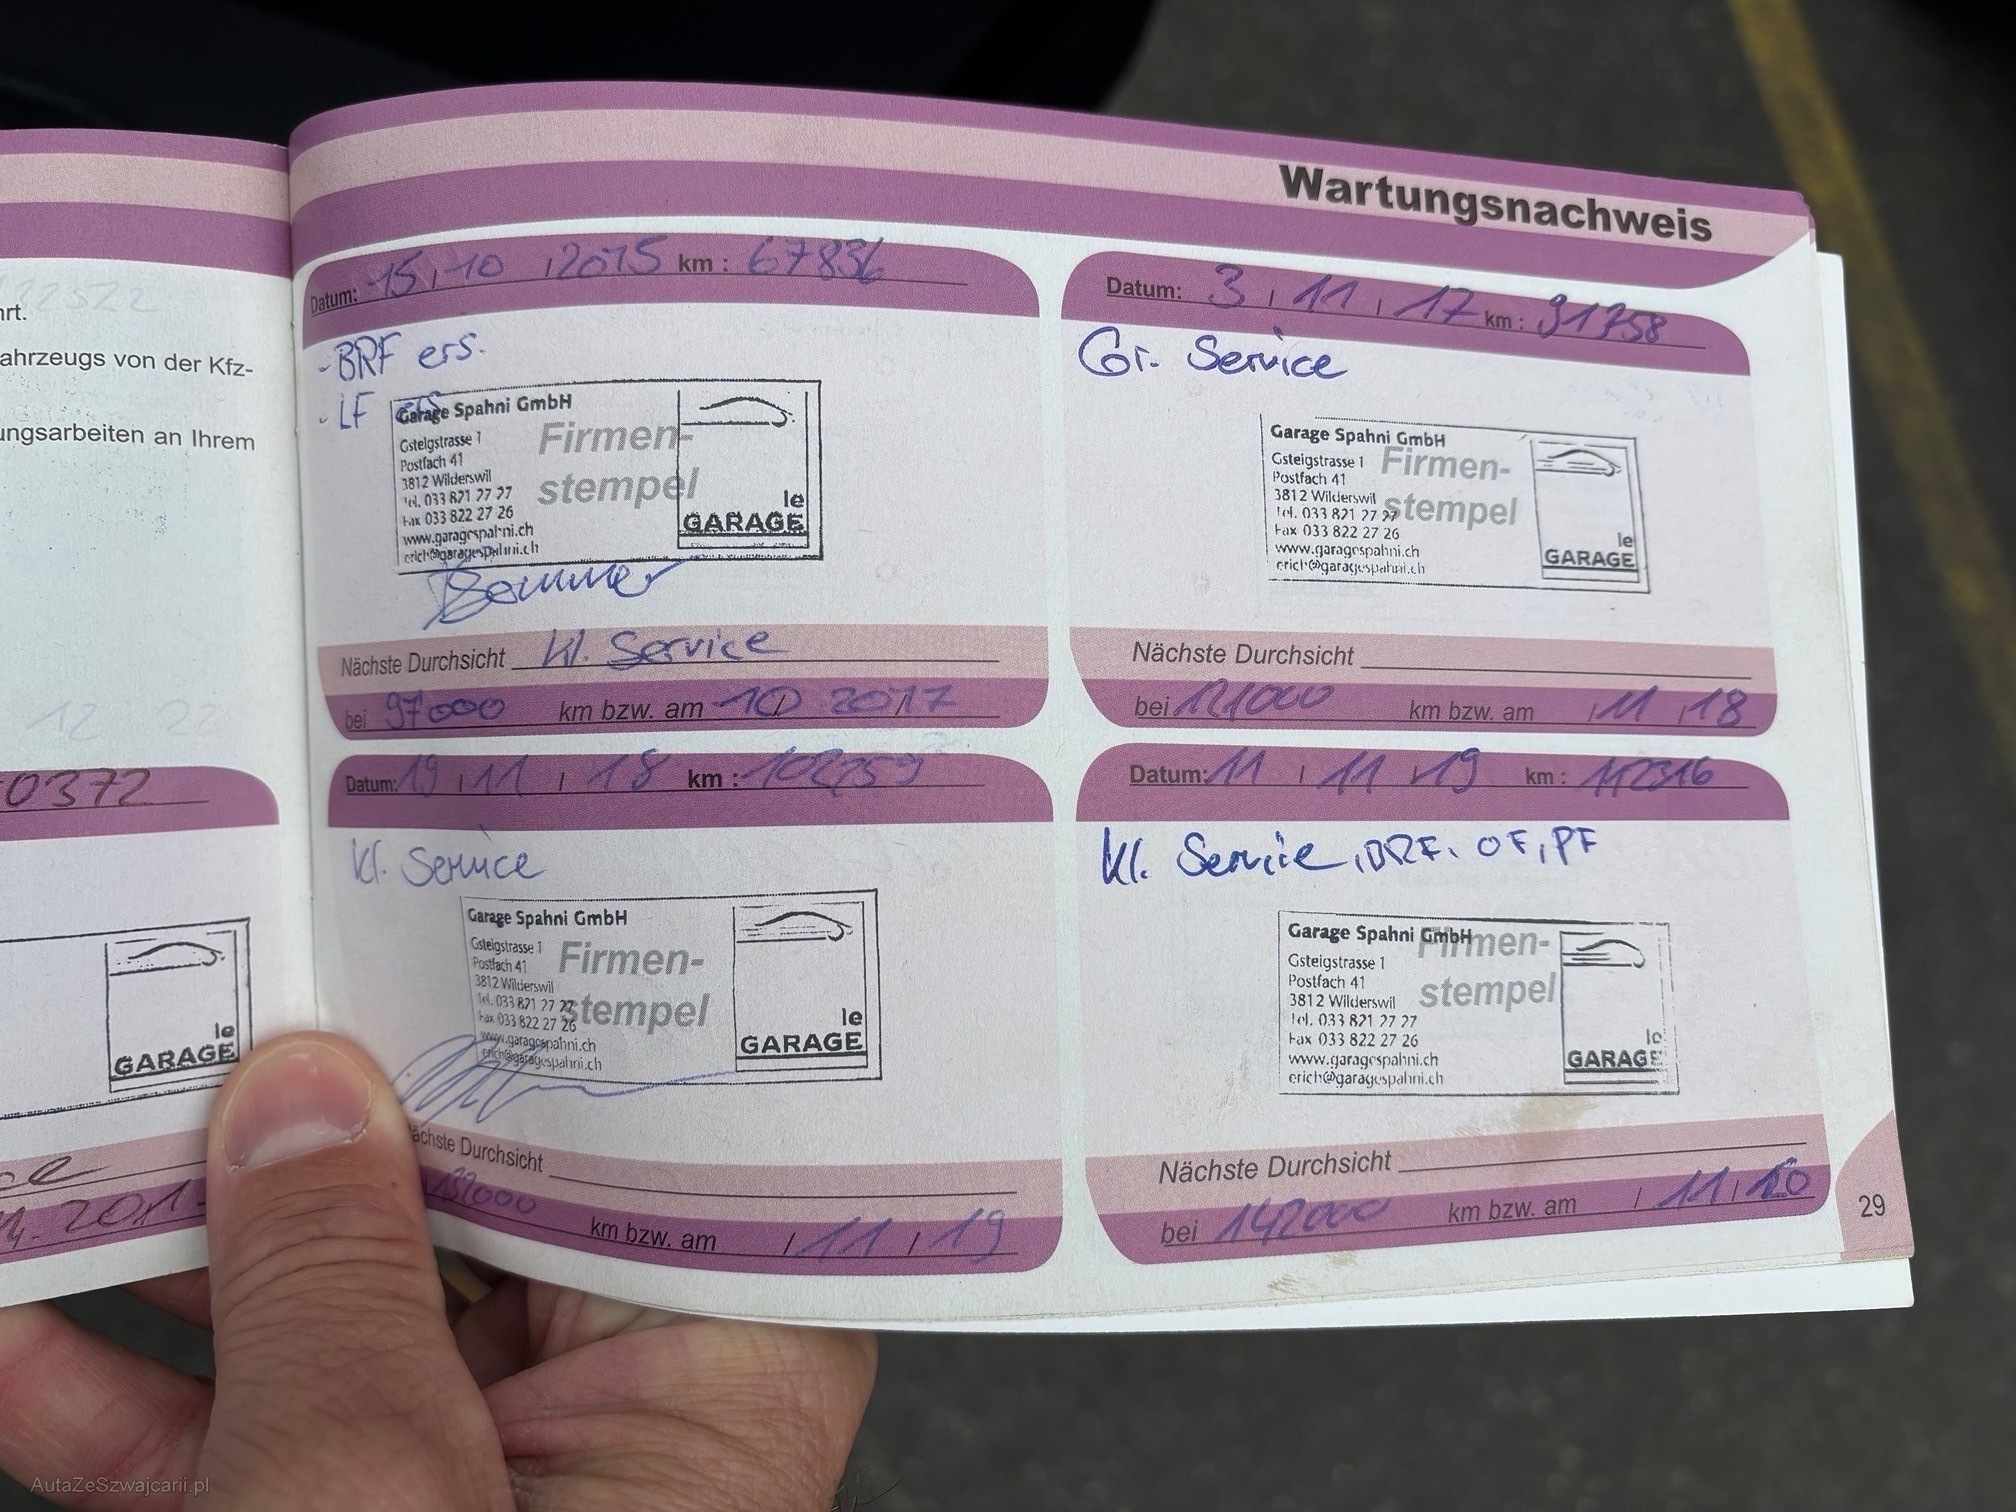 hrt.
ahrzeugs von der Kfz-
ungsarbeiten an Ihrem
12 22
0372
le
GARAGE
Wartungsnachweis
Datum: 15 / 10 / 2015 km : 67836
- BRF ers.
- LF ers
Garage Spahni GmbH
Gsteigstrasse 1
Postfach 41
3812 Wilderswil
Tel. 033 821 27 27
Fax 033 822 27 26
www.garagespahni.ch
erich@garagespahni.ch
Firmen-
stempel
le
GARAGE
Nächste Durchsicht Kl. Service
bei 97000 km bzw. am 10 2017
Datum: 3 / 11 / 17 km : 91758
Gr. Service
Garage Spahni GmbH
Gsteigstrasse 1
Postfach 41
3812 Wilderswil
Tel. 033 821 27 27
Fax 033 822 27 26
www.garagespahni.ch
erich@garagespahni.ch
Firmen-
stempel
le
GARAGE
Nächste Durchsicht
bei 121000 km bzw. am / 11 / 18
Datum: 19 / 11 / 18 km : 102259
Kl. Service
Garage Spahni GmbH
Gsteigstrasse 1
Postfach 41
3812 Wilderswil
Tel. 033 821 27 27
Fax 033 822 27 26
www.garagespahni.ch
erich@garagespahni.ch
Firmen-
stempel
le
GARAGE
ächste Durchsicht
132000 km bzw. am / 11 / 19
Datum: 11 / 11 / 19 km : 112316
Kl. Service, BRF. OF, PF
Garage Spahni GmbH
Gsteigstrasse 1
Postfach 41
3812 Wilderswil
Tel. 033 821 27 27
Fax 033 822 27 26
www.garagespahni.ch
erich@garagespahni.ch
Firmen-
stempel
le
GARAGE
Nächste Durchsicht
bei 142000 km bzw. am / 11 / 20
29
AutaZeSzwajcarii.pl